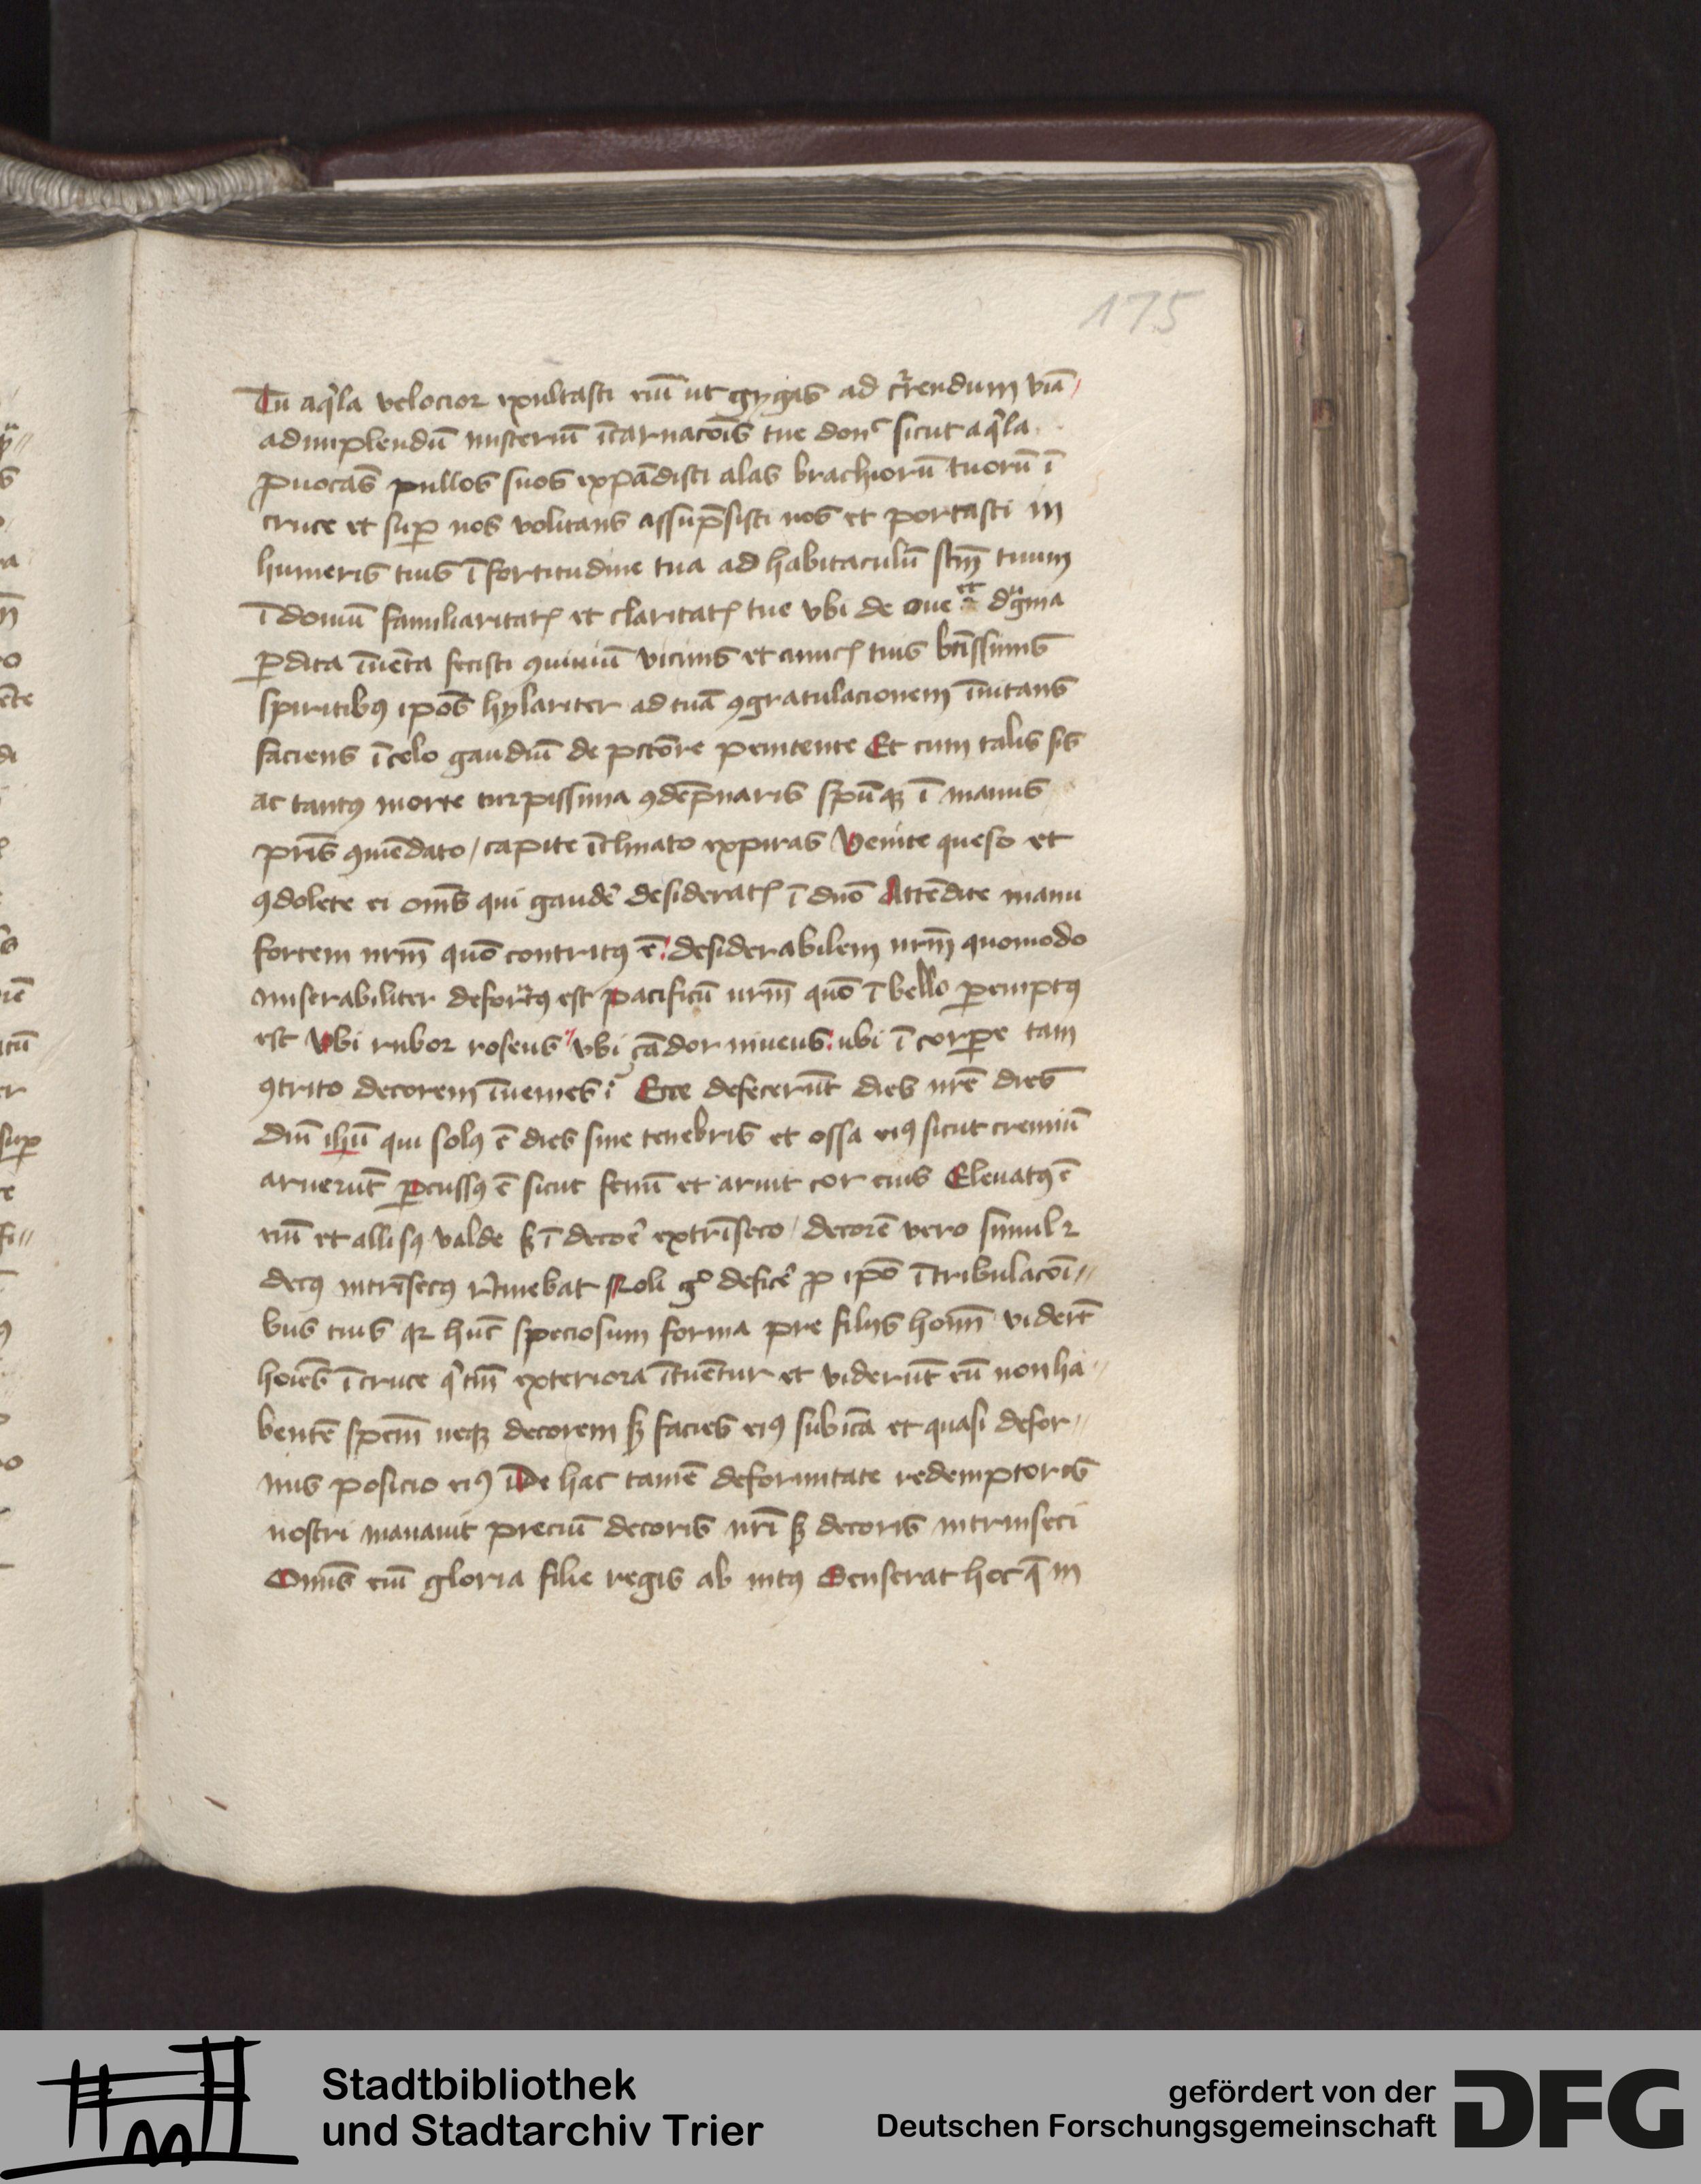 175
Tu aq̇la velocior exultasti eni̅ ut gygas ad cr̄rendum via̅
ad implendu̅ misteriu̅ i̅carnaco̅is tue donc sicut aq̇la
ꝓuocās pullos suos expa̅disti alas brachioru̅ tuoru̅ i̅
cruce et suꝑ nos volitans assup̅sisti nos et portasti in
humeris tuis i̅ fortitudine tua ad habitaculu̅ stm̅ tuum
i̅ domu̅ familiaritatꝭ et claritatꝭ tue vbi de oue et dgͣma
ꝑdita i̅ue̅ta fecisti ꝯuiuiu̅ vicinis et amicꝭ tuis bt̅issimis
spiritibꝰ ipo̅s hylariter ad tua̅ ꝯgratulacionem i̅uitans
faciens i̅ celo gaudiu̅ de pcto̅re penitente Et cum talis sis
ac tantꝰ morte turpissima ꝯde̅pnaris spu̅qꝫ i̅ manus
pr̅is ꝯme̅dato / capite i̅clinato expiras Venite queso et
ꝯdolete ei om̅s qui gaude̅ desideratꝭ i̅ dn̅o Atte̅dite manu
fortem nr̅m quo̅ contritꝰ e̅ desiderabilem nr̅m quomodo
miserabiliter defor̅tꝰ est pacificu̅ nr̅m quo̅ i̅ bello ꝑemptꝰ
est Vbi rubor roseus vbi ca̅dor niueus ubi i̅ corꝑe tam
ꝯtrito decorem i̅uenies Ecce defeceru̅t dies nr̅e dies
dn̅i ihu̅ qui solꝰ e̅ dies sine tenebris et ossa eiꝰ sicut cremiu̅
arueru̅t ꝑcussꝰ e̅ sicut fenu̅ et aruit cor eius Eleuatꝰ e̅
eni̅ et allisꝰ valde sꝫ i̅ deco̅e extri̅seco / decore̅ vero simulr
decꝰ intri̅secꝰ r̅tinebat Noli gͦ defice̅ ꝓ ipo̅ i̅ tribulaco̅i
bus tuis qꝛ hu̅c speciosum forma pre filiis homi̅ vider̅t
hoi̅es i̅ cruce q̇ tm̅ exteriora i̅tue̅tur et videru̅t eu̅ non ha
bente̅ spem̅ neqꝫ decorem sꝫ facies eiꝰ subica et quasi defor
mis posicio eiꝰ De hac tame̅ deformitate redemptoris
nostri manauit preciu̅ decoris nr̅i sꝫ decoris intrinseci
Omi̅s eni̅ gloria filie regis ab intꝰ Senserat hoc q̅ in
Stadtbibliothek
und Stadtarchiv Trier
gefördert von der
Deutschen Forschungsgemeinschaft
DFG